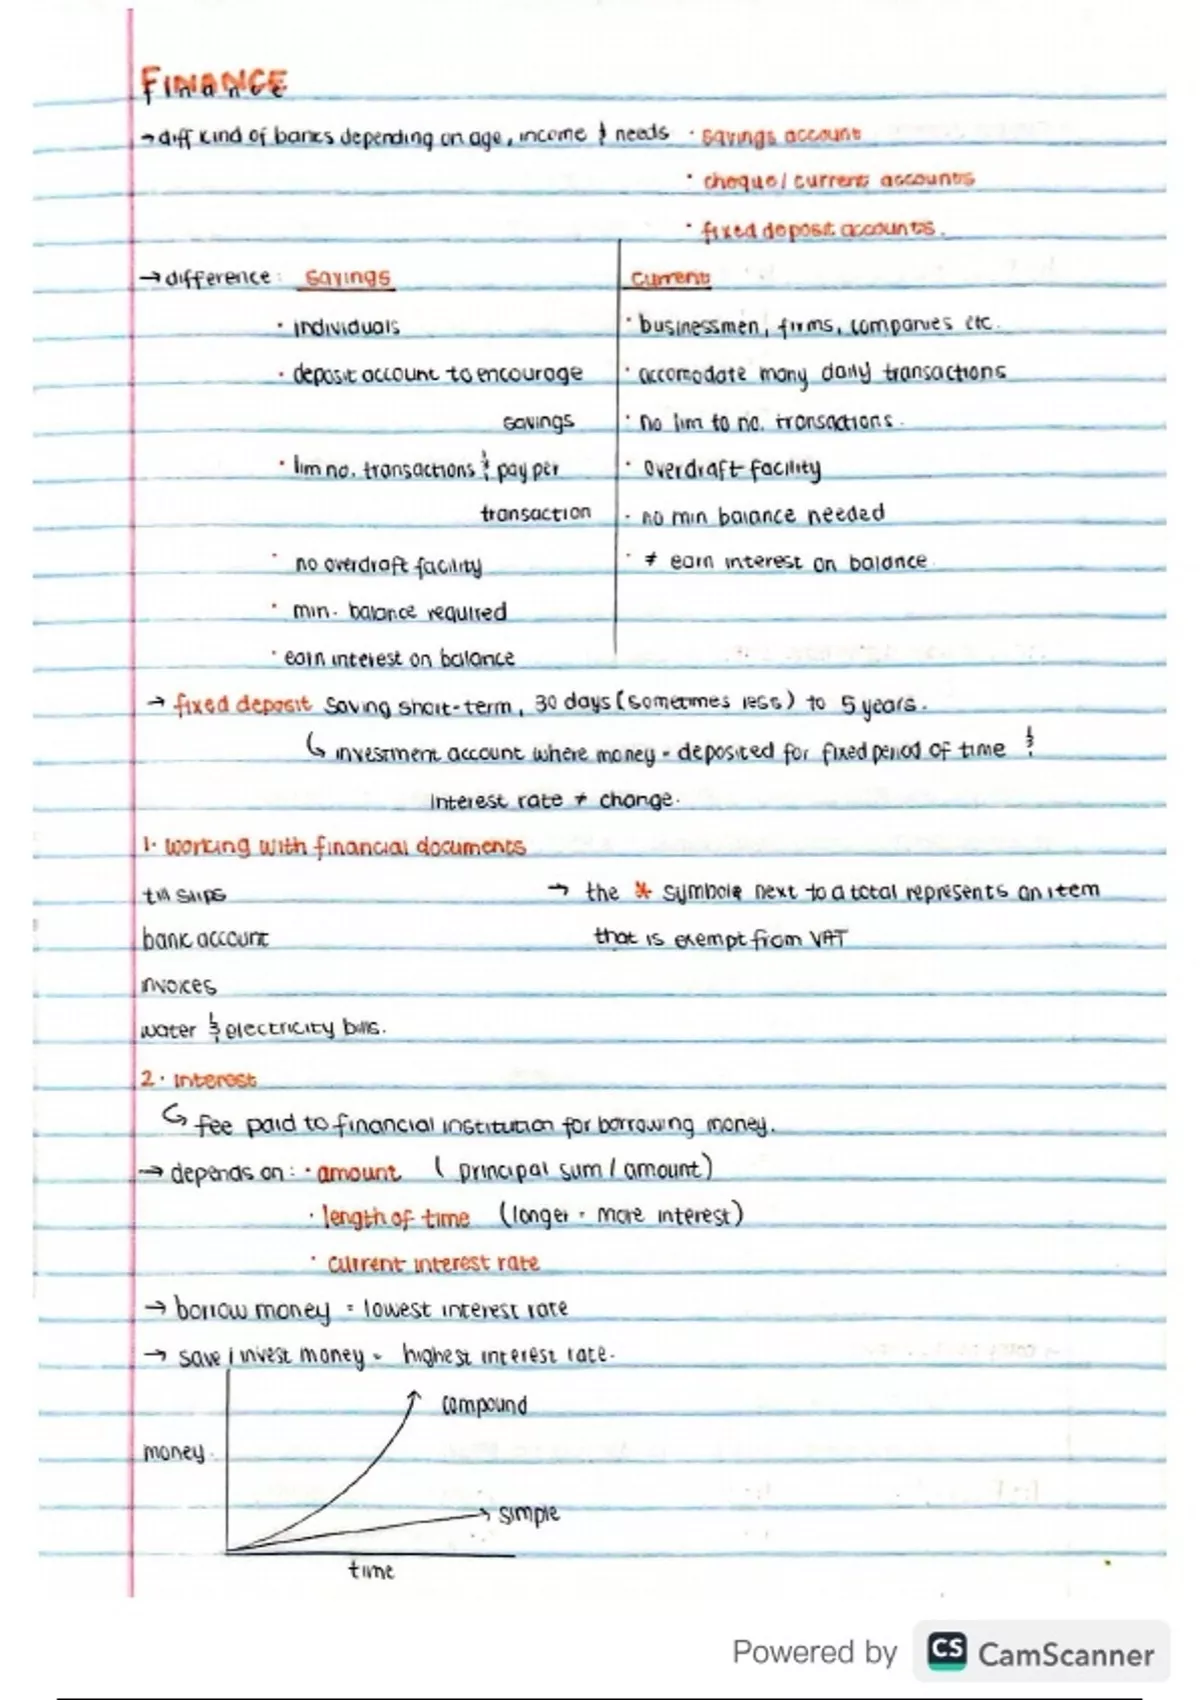 FINANCE
→ diff kind of banks depending on age, income & needs · savings account
· cheque/current accounts
· fixed deposit accounts.
→ difference: Savings Current
· individuals · businessmen, firms, companies etc.
· deposit account to encourage · accomodate many daily transactions
savings · no lim to no. transactions.
· lim no. transactions & pay per · overdraft facility
transaction · no min balance needed
· no overdraft facility · ≠ earn interest on balance.
· min. balance required
· earn interest on balance
→ fixed deposit saving short-term, 30 days (sometimes less) to 5 years.
↳ investment account where money = deposited for fixed period of time &
interest rate ≠ change.
1. Working with financial documents
till slips → the * symbole next to a total represents an item
bank account that is exempt from VAT
invoices
water & electricity bills.
2. Interest
↳ fee paid to financial institution for borrowing money.
→ depends on: · amount ( principal sum / amount)
· length of time (longer = more interest)
· current interest rate
→ borrow money = lowest interest rate
→ save / invest money = highest interest rate.
compound
money.
simple
time
Powered by CS CamScanner